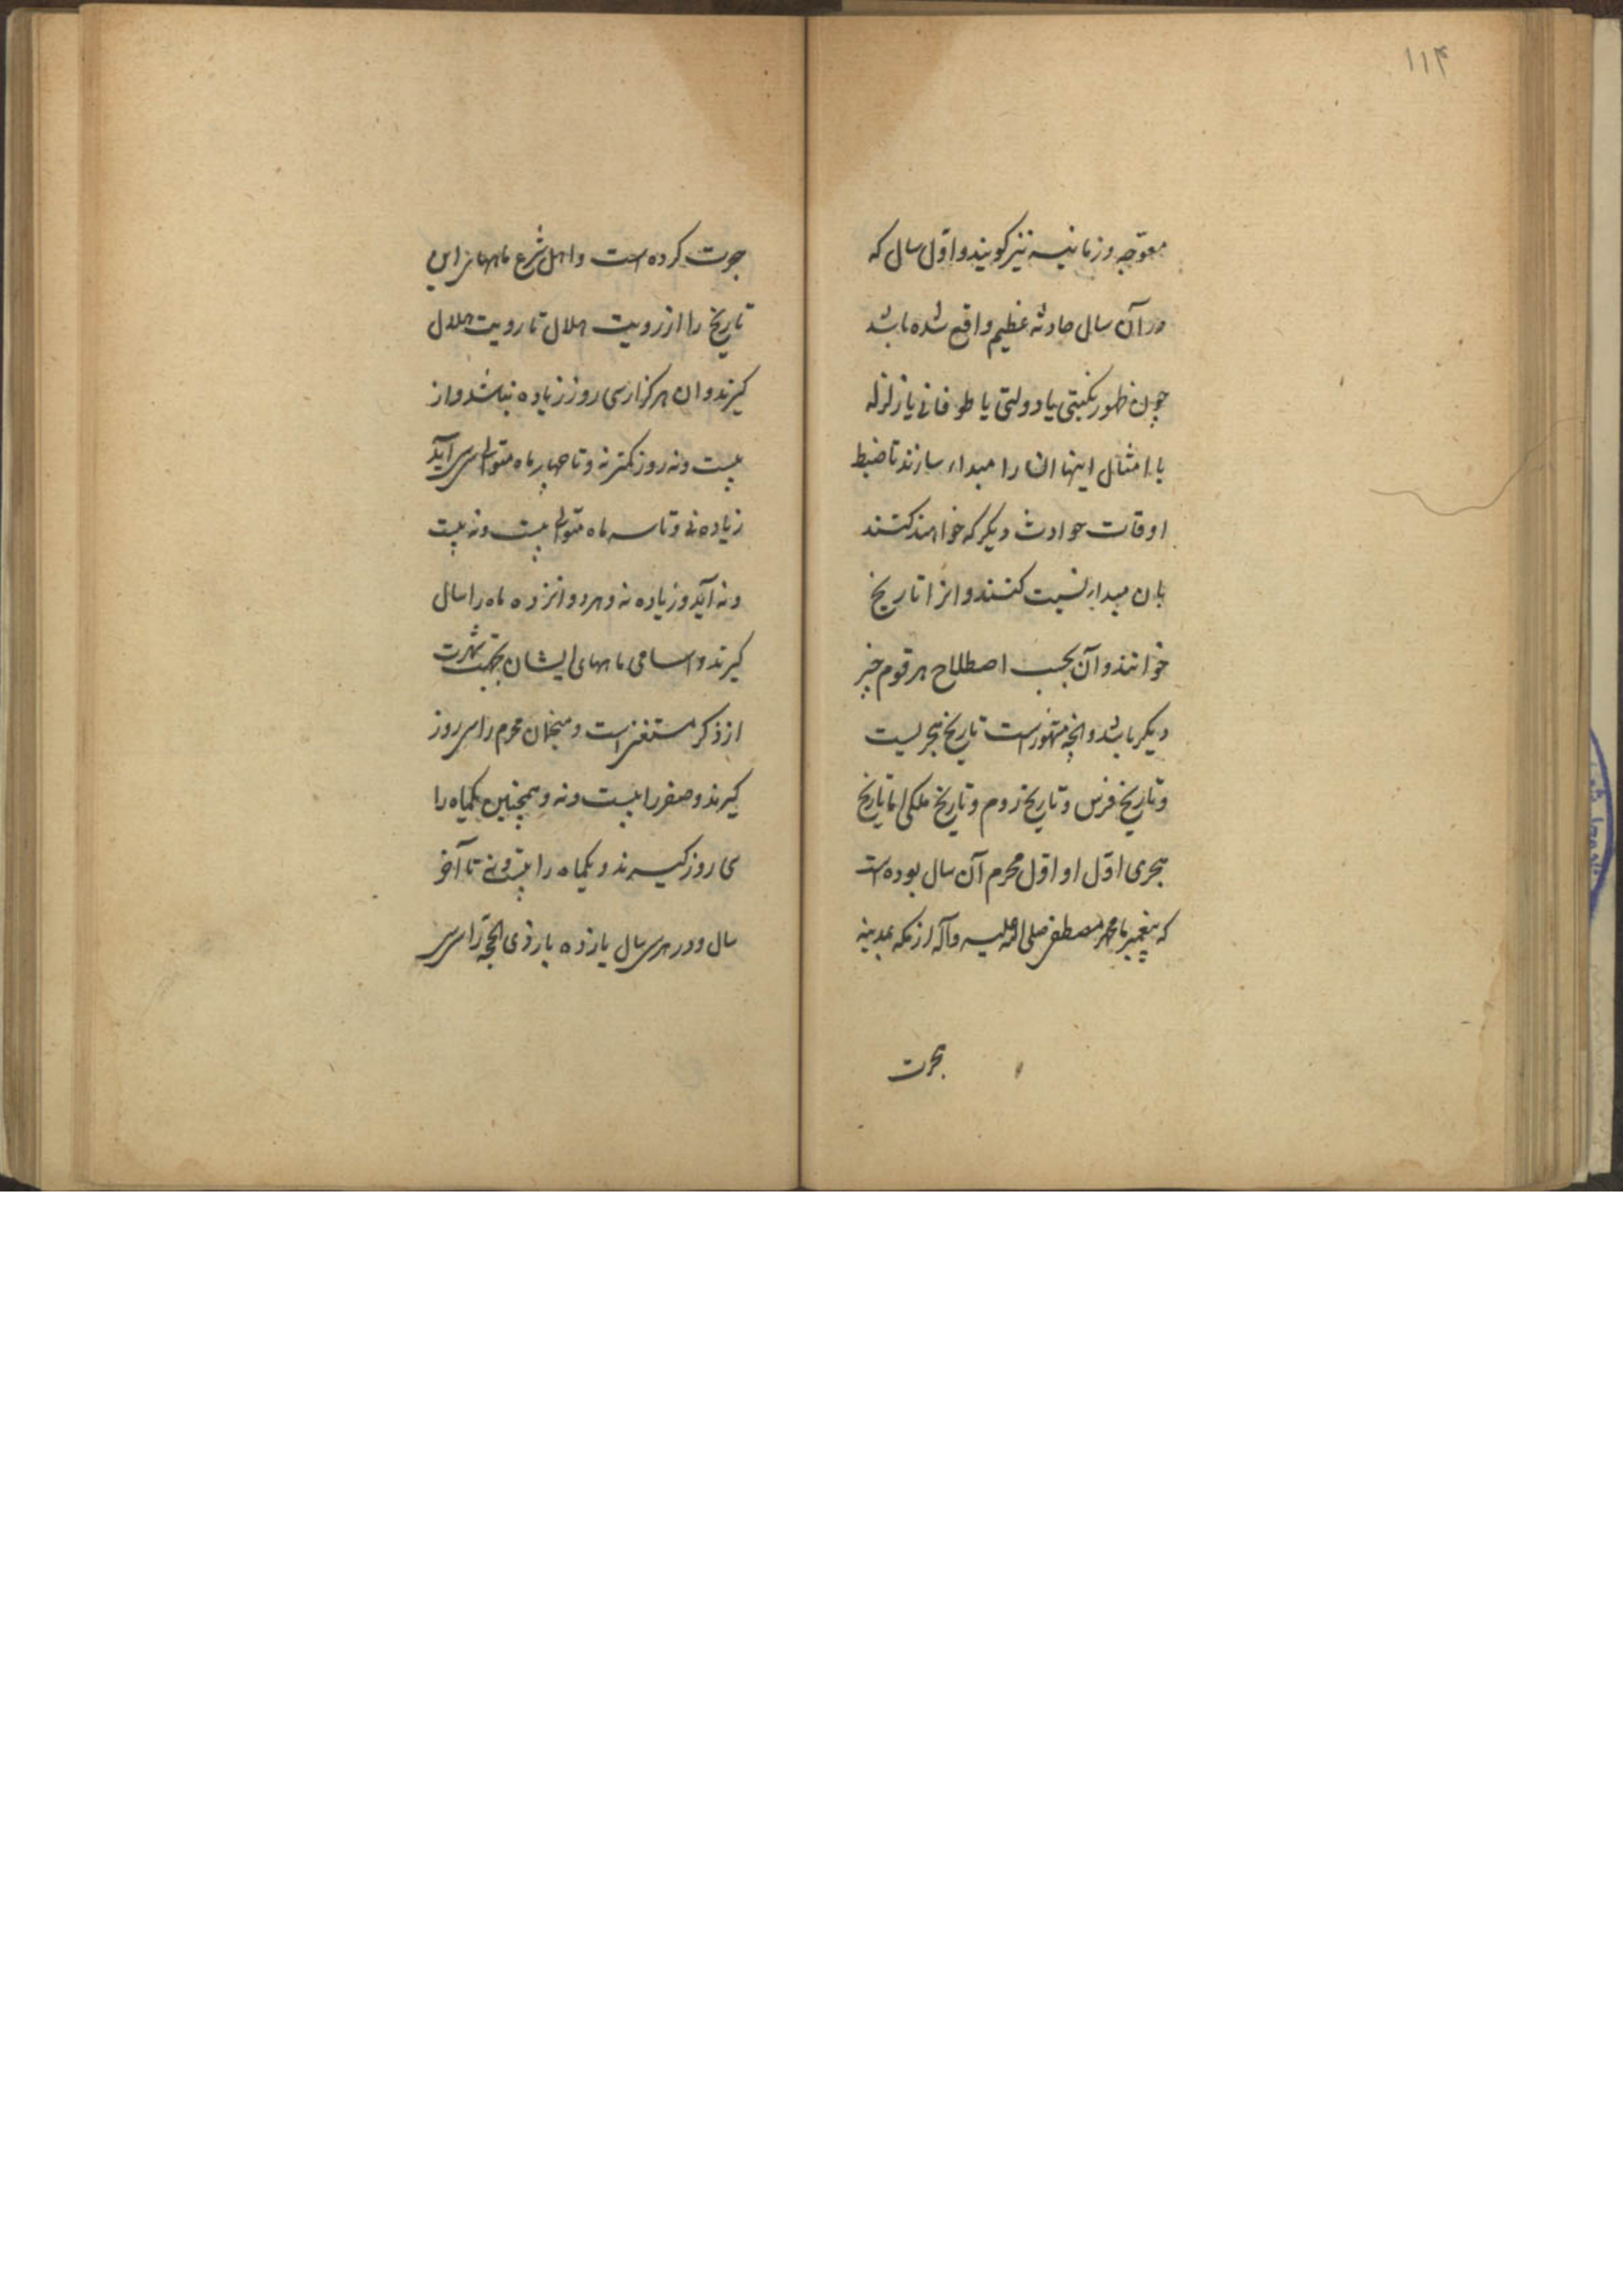 ۱۱۴
معوّجه و زمانیه نیز کویند و اوّل سال که
در آن سال حادثه عظیم واقع شده باشد
چون ظهور نکبتی یا دولتی یا طوفانی یا زلزله
یا امثال اینها انرا مبداء سازند تا ضبط
اوقات حوادث دیکر که خواهند کنند
بان مبداء نسبت کنند و انرا تاریخ
خوانند و آن بحسب اصطلاح هر قوم چیز
دیکر باشد و انچه مشهور است تاریخ هجریست
و تاریخ فرس و تاریخ روم و تاریخ ملکی اما تاریخ
هجری اوّل او اوّل محرم آن سال بوده است
که پیغمبر ما محمد مصطفی صلی الله علیه و آله از مکه بمدینه
هجرت
هجرت کرده است و اهل شرع ماههای این
تاریخ را از رویت هلال تا رویت هلال
کیرند و ان هرکز از سی روز زیاده نباشد و از
بیست و نه روز کمتر نه و تا چهار ماه متوالی سی سی آید
زیاده نی و تا سه ماه متوالی بیست و نه بیست
و نه آید و زیاده نه و هر دوانزده ماه را سال
کیرند و اسامی ماههای ایشان بجهت شهرت
از ذکر مستغنی است و منجمان محرم را سی روز
کیرند و صفر را بیست و نه و همچنین یکماه را
سی روز کیرند و یکماه را بیست و نه تا آخر
سال و در هر سی سال یازده بار ذی الحجّه را سی